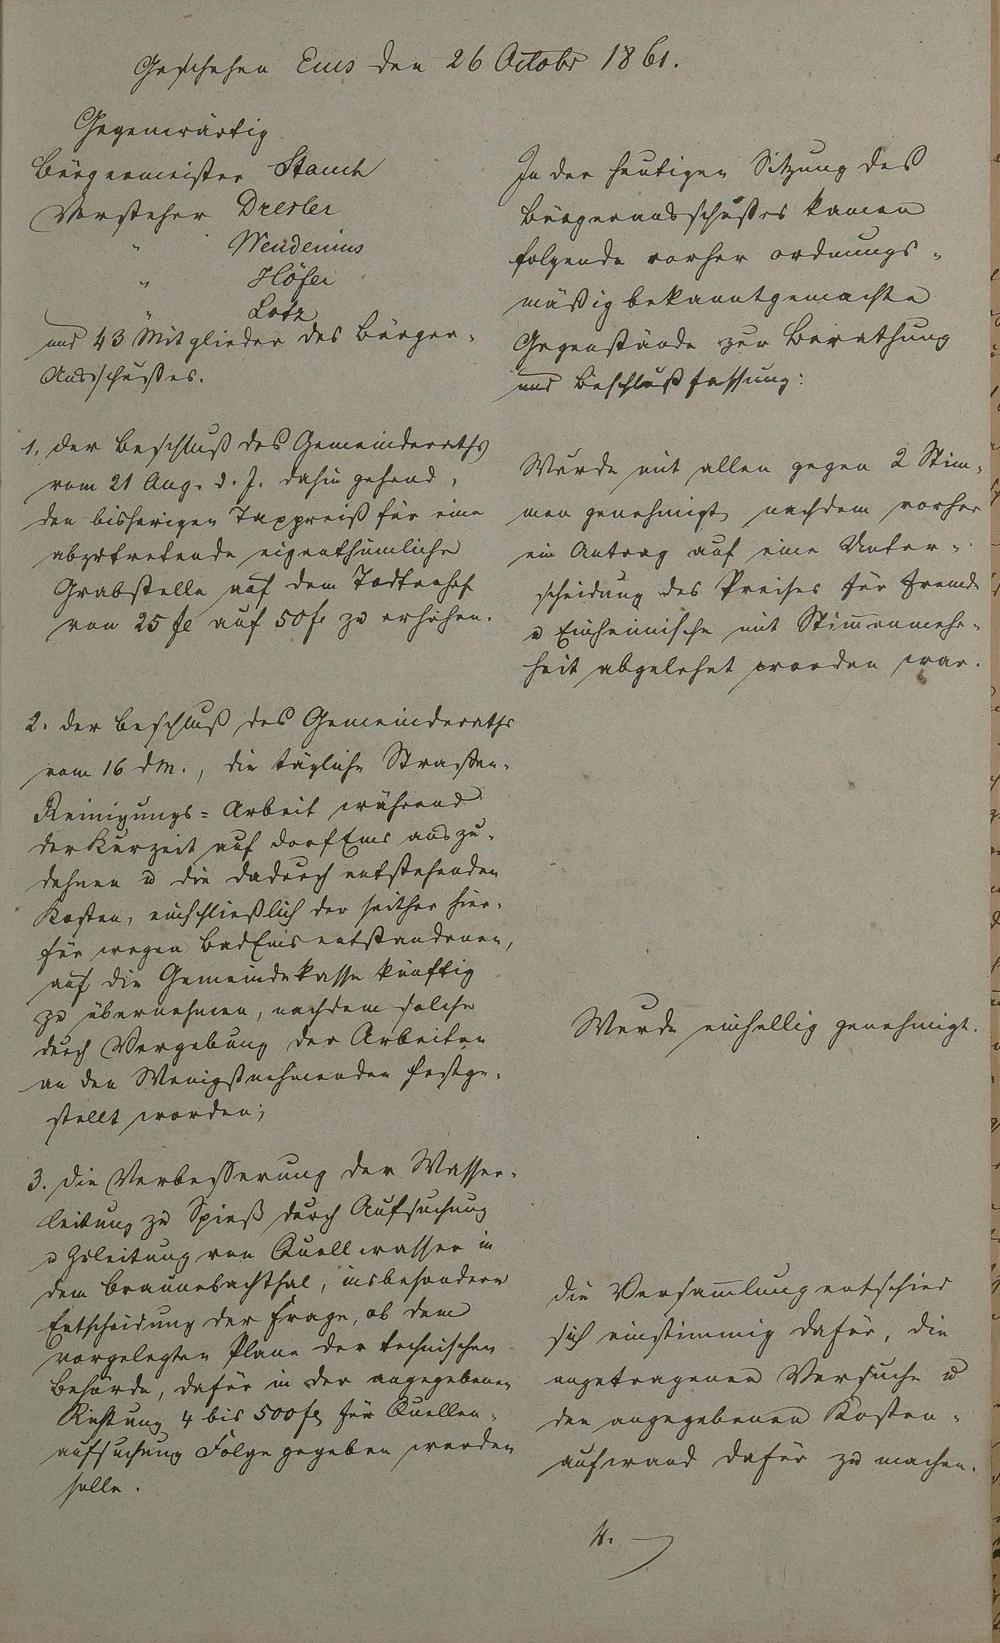 Geschehen Ems den 26 Octobr 1861.
Gegenwärtig
Bürgermeister Stauch
Vorsteher Dresler
" Wendenius
" Höfer
" Lotz
und 43 Mitglieder des Bürger-
Ausschußes.
In der heutigen Sitzung des
Bürgerausschußes kamen
folgende vorher ordnungs-
mäßig bekanntgemachte
Gegenstände zur Berathung
und Beschlußfassung:
1. der Beschluß des Gemeinderaths
vom 21 Aug. d. J. dahin gehend,
den bisherigen Taxpreiß für eine
abzutretende eigenthümliche
Grabstelle auf dem Todtenhof
von 25 fl auf 50 fl zu erhöhen.
Wurde mit allen gegen 2 Stim-
men genehmigt, nachdem vorher
ein Antrag auf eine Unter-
scheidung des Preises für Fremde
u Einheimische mit Stimmenmehr-
heit abgelehnt worden war.
2. der Beschluß des Gemeinderaths
vom 16 d M., die tägliche Straßen-
Reinigungs-Arbeit während
der Kurzeit auf Dorf Ems auszu-
dehnen u die dadurch entstehenden
Kosten, einschließlich der seither hier-
für wegen Bad Ems entstandenen,
auf die Gemeindekasse künftig
zu übernehmen, nachdem solche
durch Vergebung der Arbeiten
an den Wenigstnehmenden festge-
stellt worden;
Wurde einhellig genehmigt.
3. die Verbesserung der Wasser-
leitung zu Spieß durch Aufsuchung
u Zuleitung von Quellwasser in
dem Braunebachthal, insbesondere
Entscheidung der Frage, ob dem
vorgelegten Plane der technischen
Behörde, dafür in der angegebenen
Richtung 4 bis 500 fl für Quellen-
aufsuchung Folge gegeben werden
solle.
die Versammlung entschied
sich einstimmig dafür, die
angetragenen Versuche u
den angegebenen Kosten-
aufwand dafür zu machen.
4.